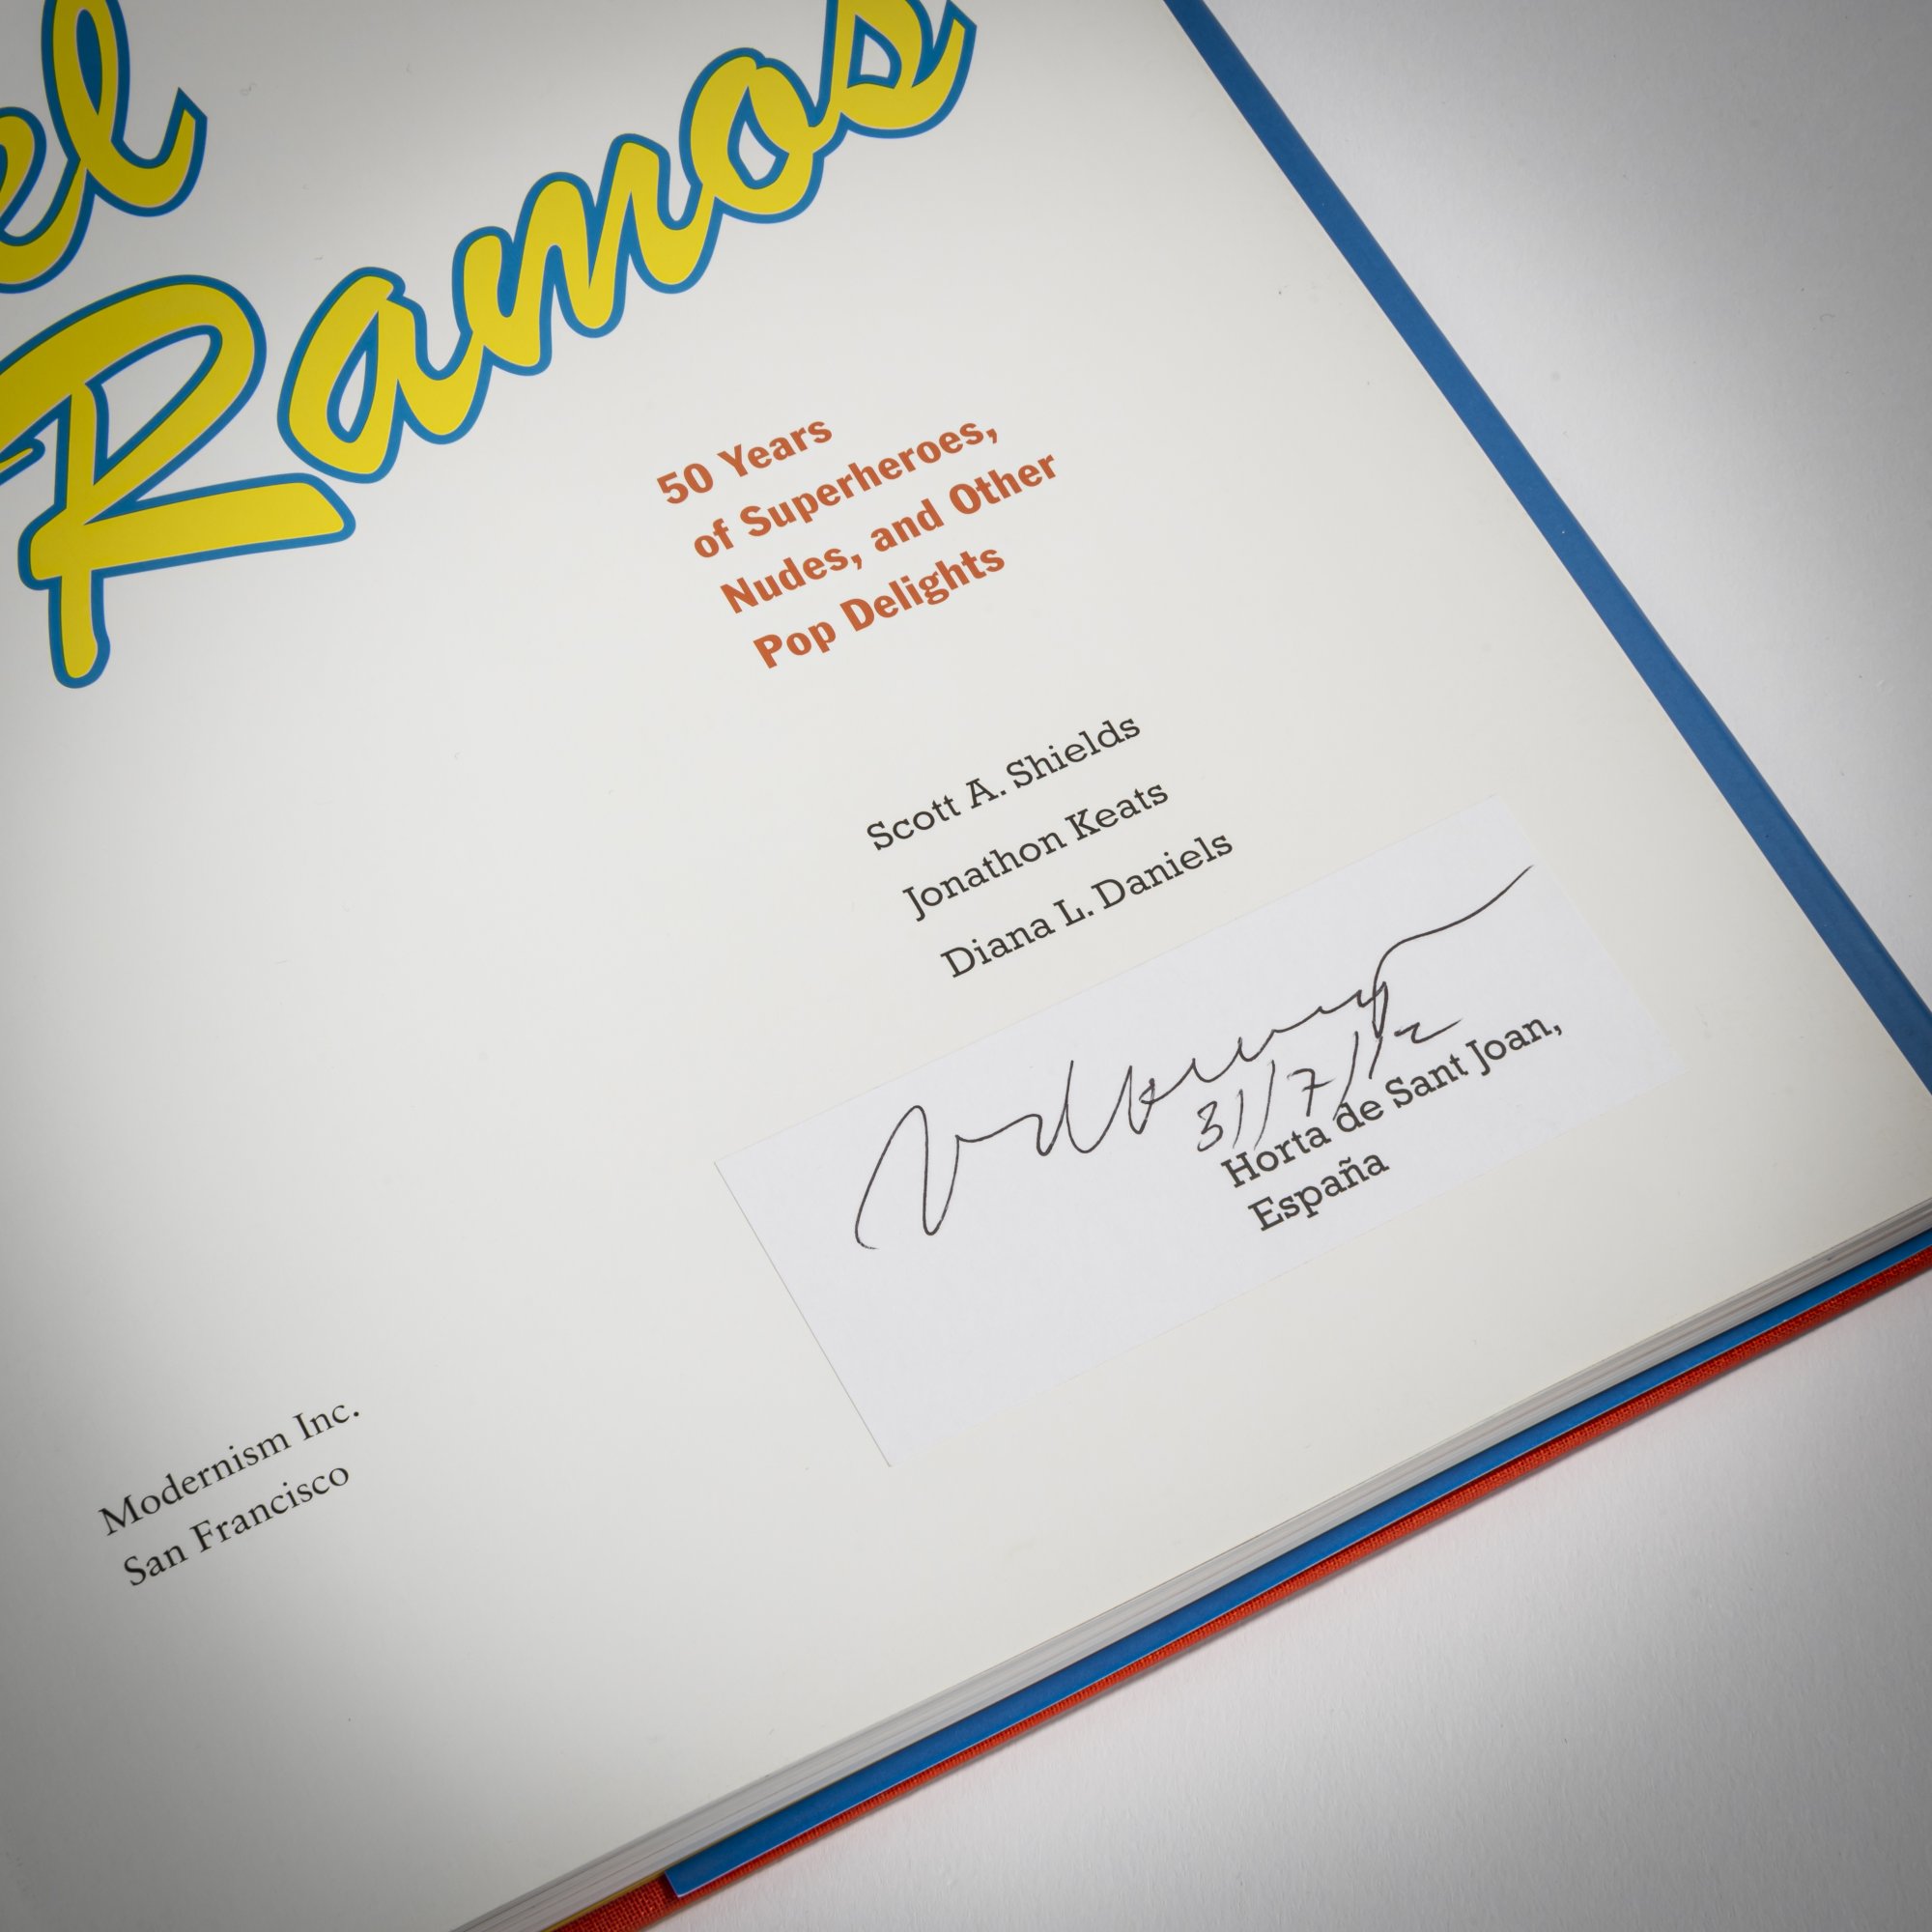 el
Ramos
50 Years
of Superheroes,
Nudes, and Other
Pop Delights
Scott A. Shields
Jonathon Keats
Diana L. Daniels
31/7/12
Horta de Sant Joan,
España
Modernism Inc.
San Francisco